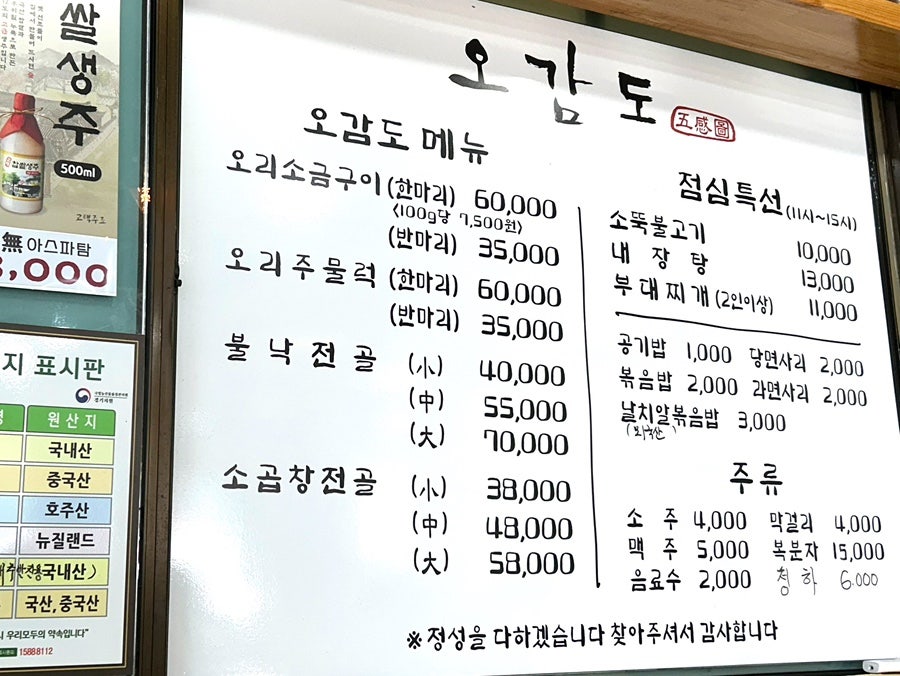 쌀생주
500ml
찹쌀생주
고택주조
無 아스파탐
,000
지 표시판
원산지
국내산
중국산
호주산
뉴질랜드
국내산)
국산, 중국산
우리모두의 약속입니다"
1588-8112
오감도
五感圖
오감도 메뉴
오리소금구이 (한마리) 60,000
<100g당 7,500원>
(반마리) 35,000
오리주물럭 (한마리) 60,000
(반마리) 35,000
불낙전골 (小) 40,000
(中) 55,000
(大) 70,000
소곱창전골 (小) 38,000
(中) 48,000
(大) 58,000
점심특선 (11시~15시)
소뚝불고기 10,000
내장탕 13,000
부대찌개 (2인이상) 11,000
공기밥 1,000 당면사리 2,000
볶음밥 2,000 라면사리 2,000
날치알볶음밥 3,000
(외국산)
주류
소주 4,000 막걸리 4,000
맥주 5,000 복분자 15,000
음료수 2,000 청하 6.000
※ 정성을 다하겠습니다 찾아주셔서 감사합니다